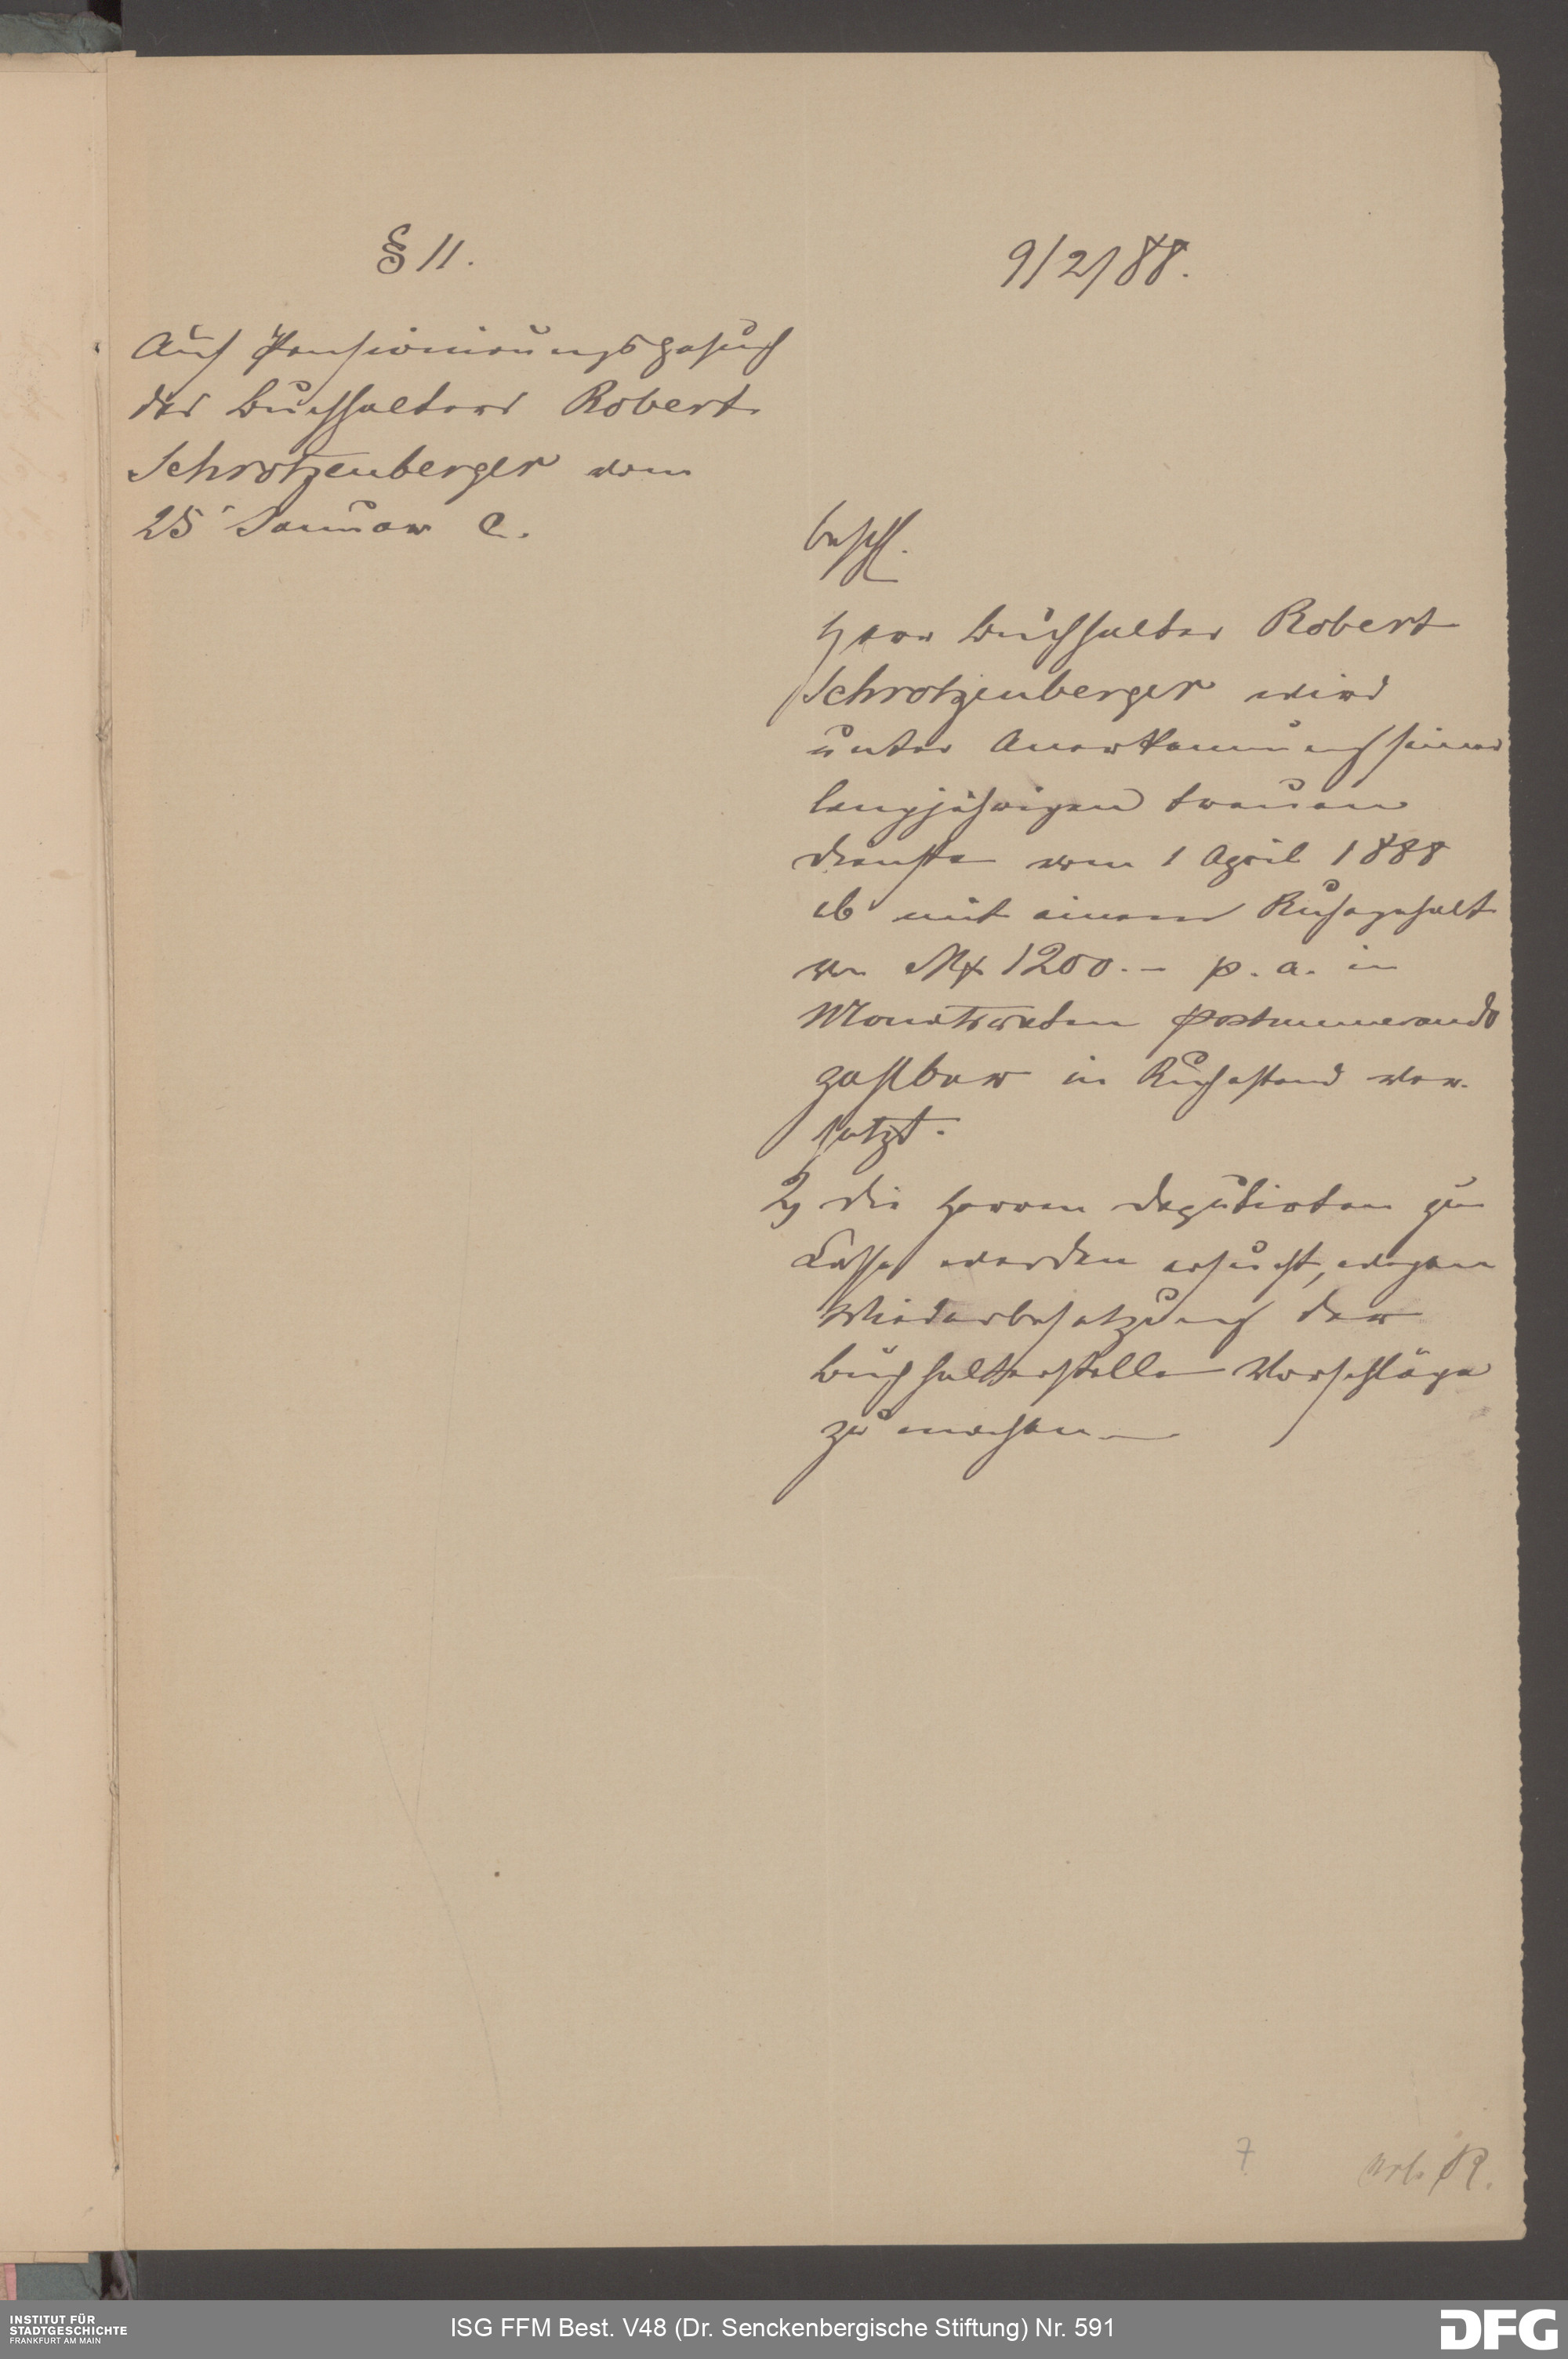 § 11.
9/2/88.
Auf Pensionierungsgesuch
des Buchhalters Robert
Schrotzenberger vom
25 Januar c.
beschl.
Herr Buchhalter Robert
Schrotzenberger wird
unter Anerkennung seiner
langjährigen treuen
Dienste vom 1 April 1888
ab mit einem Ruhegehalt
von Mk 1200.- p. a. in
Monatsraten postnumerando
zahlbar in Ruhestand ver-
setzt.
2) die Herren Deputirten zur
Casse werden ersucht, wegen
Wiederbesetzung der
Buchhalterstelle Vorschläge
zu machen
7
R.
INSTITUT FÜR
STADTGESCHICHTE
FRANKFURT AM MAIN
ISG FFM Best. V48 (Dr. Senckenbergische Stiftung) Nr. 591
DFG